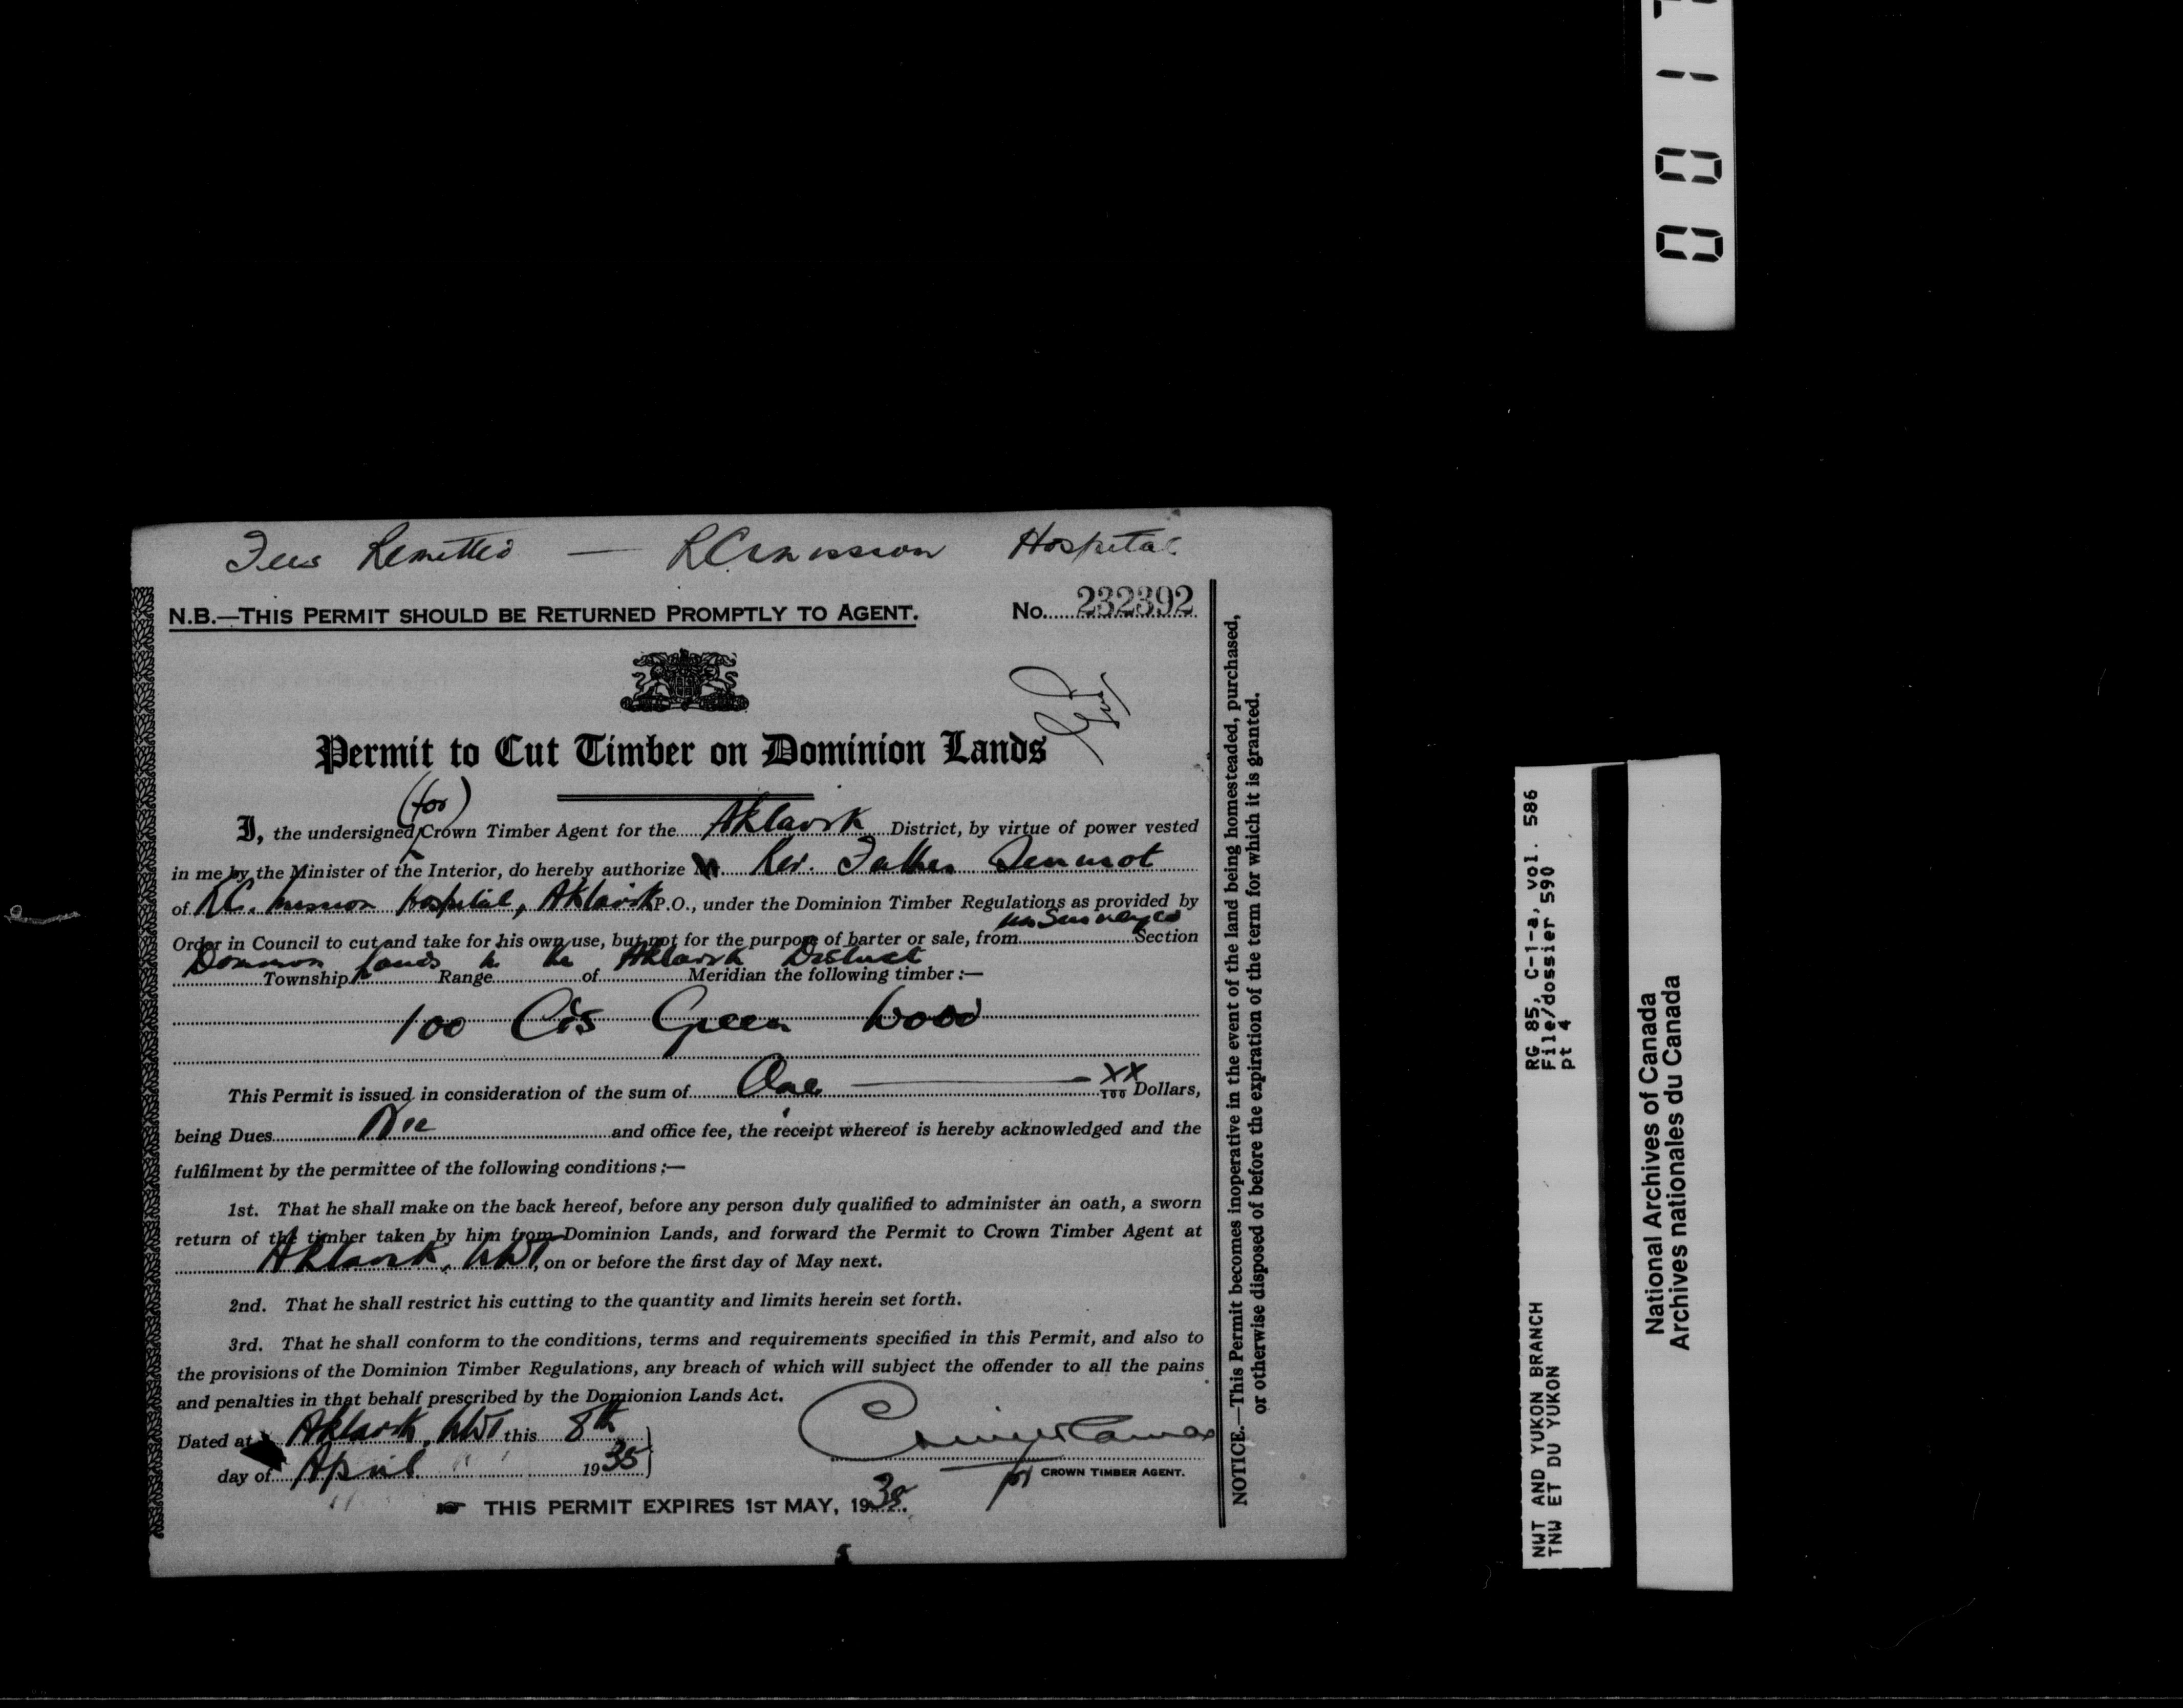 Fees Remitted — RC Mission Hospital
N.B.—THIS PERMIT SHOULD BE RETURNED PROMPTLY TO AGENT.
No. 232392
Permit to Cut Timber on Dominion Lands
(for)
I, the undersigned Crown Timber Agent for the Aklavik District, by virtue of power vested
in me by the Minister of the Interior, do hereby authorize Rev. Father
of R.C. Mission Hospital, Aklavik P.O., under the Dominion Timber Regulations as provided by
Order in Council to cut and take for his own use, but not for the purpose of barter or sale, from unsurveyed Section
Dominion Lands in the Aklavik District
Township Range of Meridian the following timber :—
100 Cds Green Wood
This Permit is issued in consideration of the sum of One — XX/100 Dollars,
being Dues and office fee, the receipt whereof is hereby acknowledged and the
fulfilment by the permittee of the following conditions :—
1st. That he shall make on the back hereof, before any person duly qualified to administer an oath, a sworn
return of the timber taken by him from Dominion Lands, and forward the Permit to Crown Timber Agent at
Aklavik, NWT, on or before the first day of May next.
2nd. That he shall restrict his cutting to the quantity and limits herein set forth.
3rd. That he shall conform to the conditions, terms and requirements specified in this Permit, and also to
the provisions of the Dominion Timber Regulations, any breach of which will subject the offender to all the pains
and penalties in that behalf prescribed by the Domionion Lands Act.
Dated at Aklavik, NWT this 8th
day of April 1935
for CROWN TIMBER AGENT.
THIS PERMIT EXPIRES 1ST MAY, 19
NOTICE.—This Permit becomes inoperative in the event of the land being homesteaded, purchased,
or otherwise disposed of before the expiration of the term for which it is granted.
RG 85, C-1-a, vol. 586
File/dossier 590
pt 4
NWT AND YUKON BRANCH
TNW ET DU YUKON
National Archives of Canada
Archives nationales du Canada